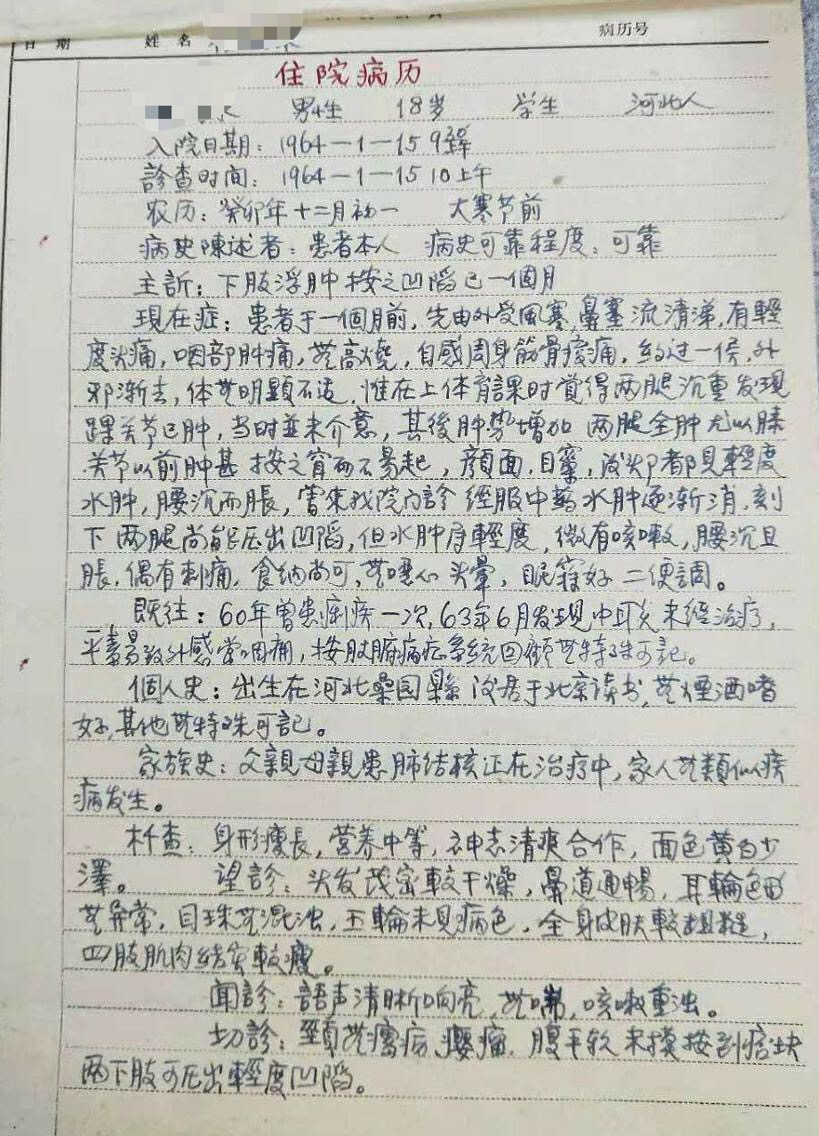 日 期 姓 名 病历号
住院病历
男性 18岁 学生 河北人
入院日期：1964－1－15 9时
診查时间：1964－1－15 10上午
农历：癸卯年十二月初一 大寒节前
病史陳述者：患者本人 病史可靠程度：可靠
主訴：下肢浮肿按之凹陷已一個月
現在症：患者于一個月前，先由外受風寒，鼻塞流清涕，有輕
度头痛，咽部肿痛，芜高燒，自感周身筋骨痠痛，約过一候，外
邪漸去，体芜明顯不适，惟在上体育課时觉得两腿沉重发現
踝关节已肿，当时並未介意，其後肿势增加 两腿全肿尤以膝
关节以前肿甚 按之窅而不易起，顏面，目窠，都見輕度
水肿，腰沉而脹，曾來我院门診 經服中藥水肿逐漸消，刻
下两腿尚能压出凹陷，但水肿輕度，微有咳嗽，腰沉且
脹，偶有刺痛，食纳尚可，芜噁心头暈，眠寐好 二便調。
既往：60年曾患痢疾一次，63年6月发現中耳炎未經治疗，
平素易致外感常咽痛，按脏腑病症系統回顧芜特殊可記。
個人史：出生在河北縣 後居于北京读书，芜煙酒嗜
好，其他芜特殊可記。
家族史：父親母親患肺结核正在治疗中，家人芜類似疾
病发生。
检查：身形瘦長，营养中等，神志清爽合作，面色黄白少
澤。 望診：头发茂密較干燥，鼻道通暢，耳輪色形
芜异常，目珠芜混浊，五輪未見病色，全身皮肤較粗糙，
四肢肌肉结实較瘦。
聞診：語声清晰响亮，芜喘，咳嗽重浊。
切診：頸芜瘰疬、癭瘤，腹平软未摸按到痞块
两下肢可压出輕度凹陷。